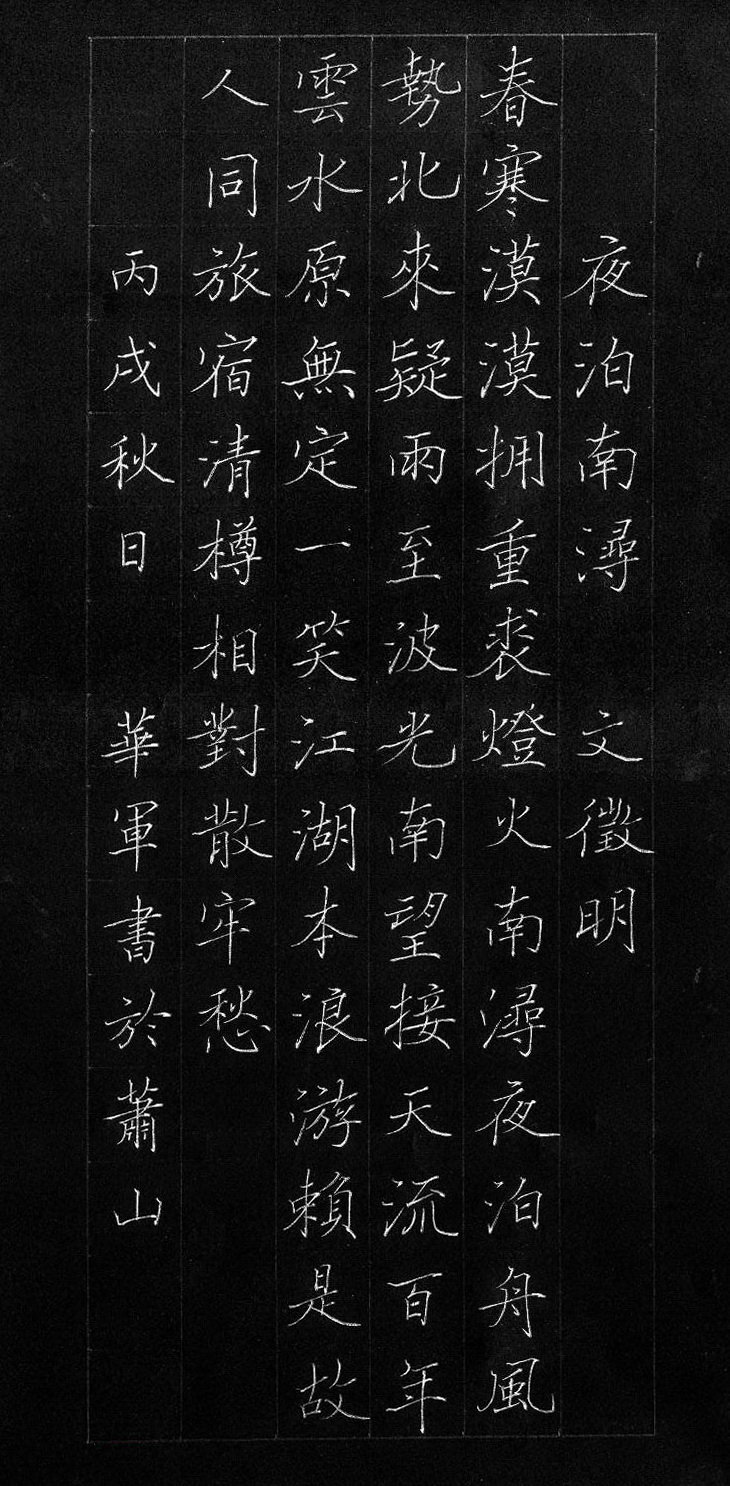 夜泊南潯 文徵明
春寒漠漠拥重裘燈火南潯夜泊舟風
勢北來疑雨至波光南望接天流百年
雲水原無定一笑江湖本浪游賴是故
人同旅宿清樽相對散牢愁
丙戌秋日 華軍書於蕭山